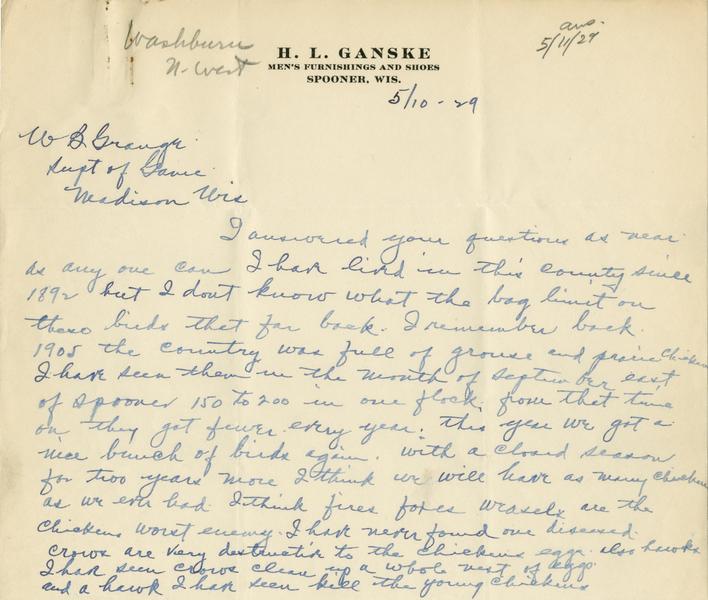 Washburn
N-West
ans.
5/11/29
H. L. GANSKE
MEN'S FURNISHINGS AND SHOES
SPOONER, WIS.
5/10 - 29
W B Grange
Supt of Game
Madison Wis
I answered your questions as near
as any one can I have lived in this county since
1892 but I dont know what the bag limit on
these birds that far back. I remember back
1905 the country was full of grouse and prairie chicken
I have seen them in the month of september east
of spooner 150 to 200 in one flock. from that time
on they got fewer every year. this year we got a
nice bunch of birds again. with a closed season
for two years more I think we will have as many chickens
as we ever had. I think fires foxes weasels are the
chickens worst enemy. I have never found one diseased.
crows are very destructive to the chickens eggs. also hawks
I have seen crows clean up a whole nest of eggs
and a hawk I have seen kill the young chickens